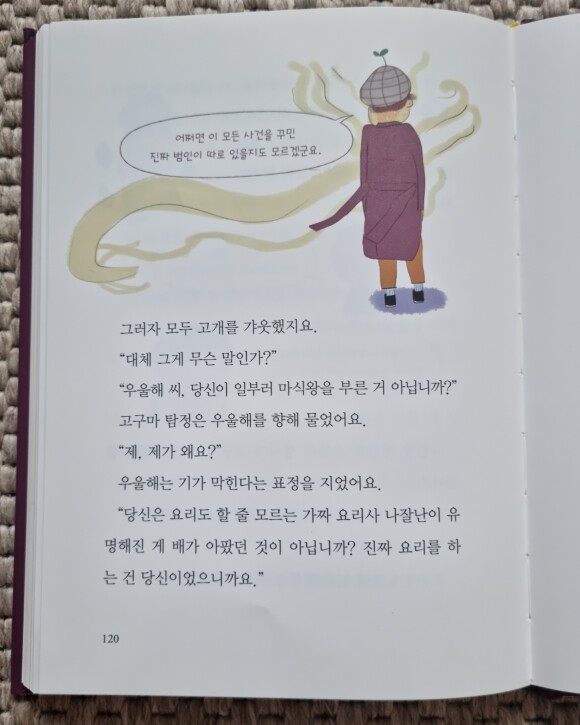 어쩌면 이 모든 사건을 꾸민
진짜 범인이 따로 있을지도 모르겠군요.
그러자 모두 고개를 갸웃했지요.
“대체 그게 무슨 말인가?”
“우울해 씨, 당신이 일부러 마식왕을 부른 거 아닙니까?”
고구마 탐정은 우울해를 향해 물었어요.
“제, 제가 왜요?”
우울해는 기가 막힌다는 표정을 지었어요.
“당신은 요리도 할 줄 모르는 가짜 요리사 나잘난이 유
명해진 게 배가 아팠던 것이 아닙니까? 진짜 요리를 하
는 건 당신이었으니까요.”
120